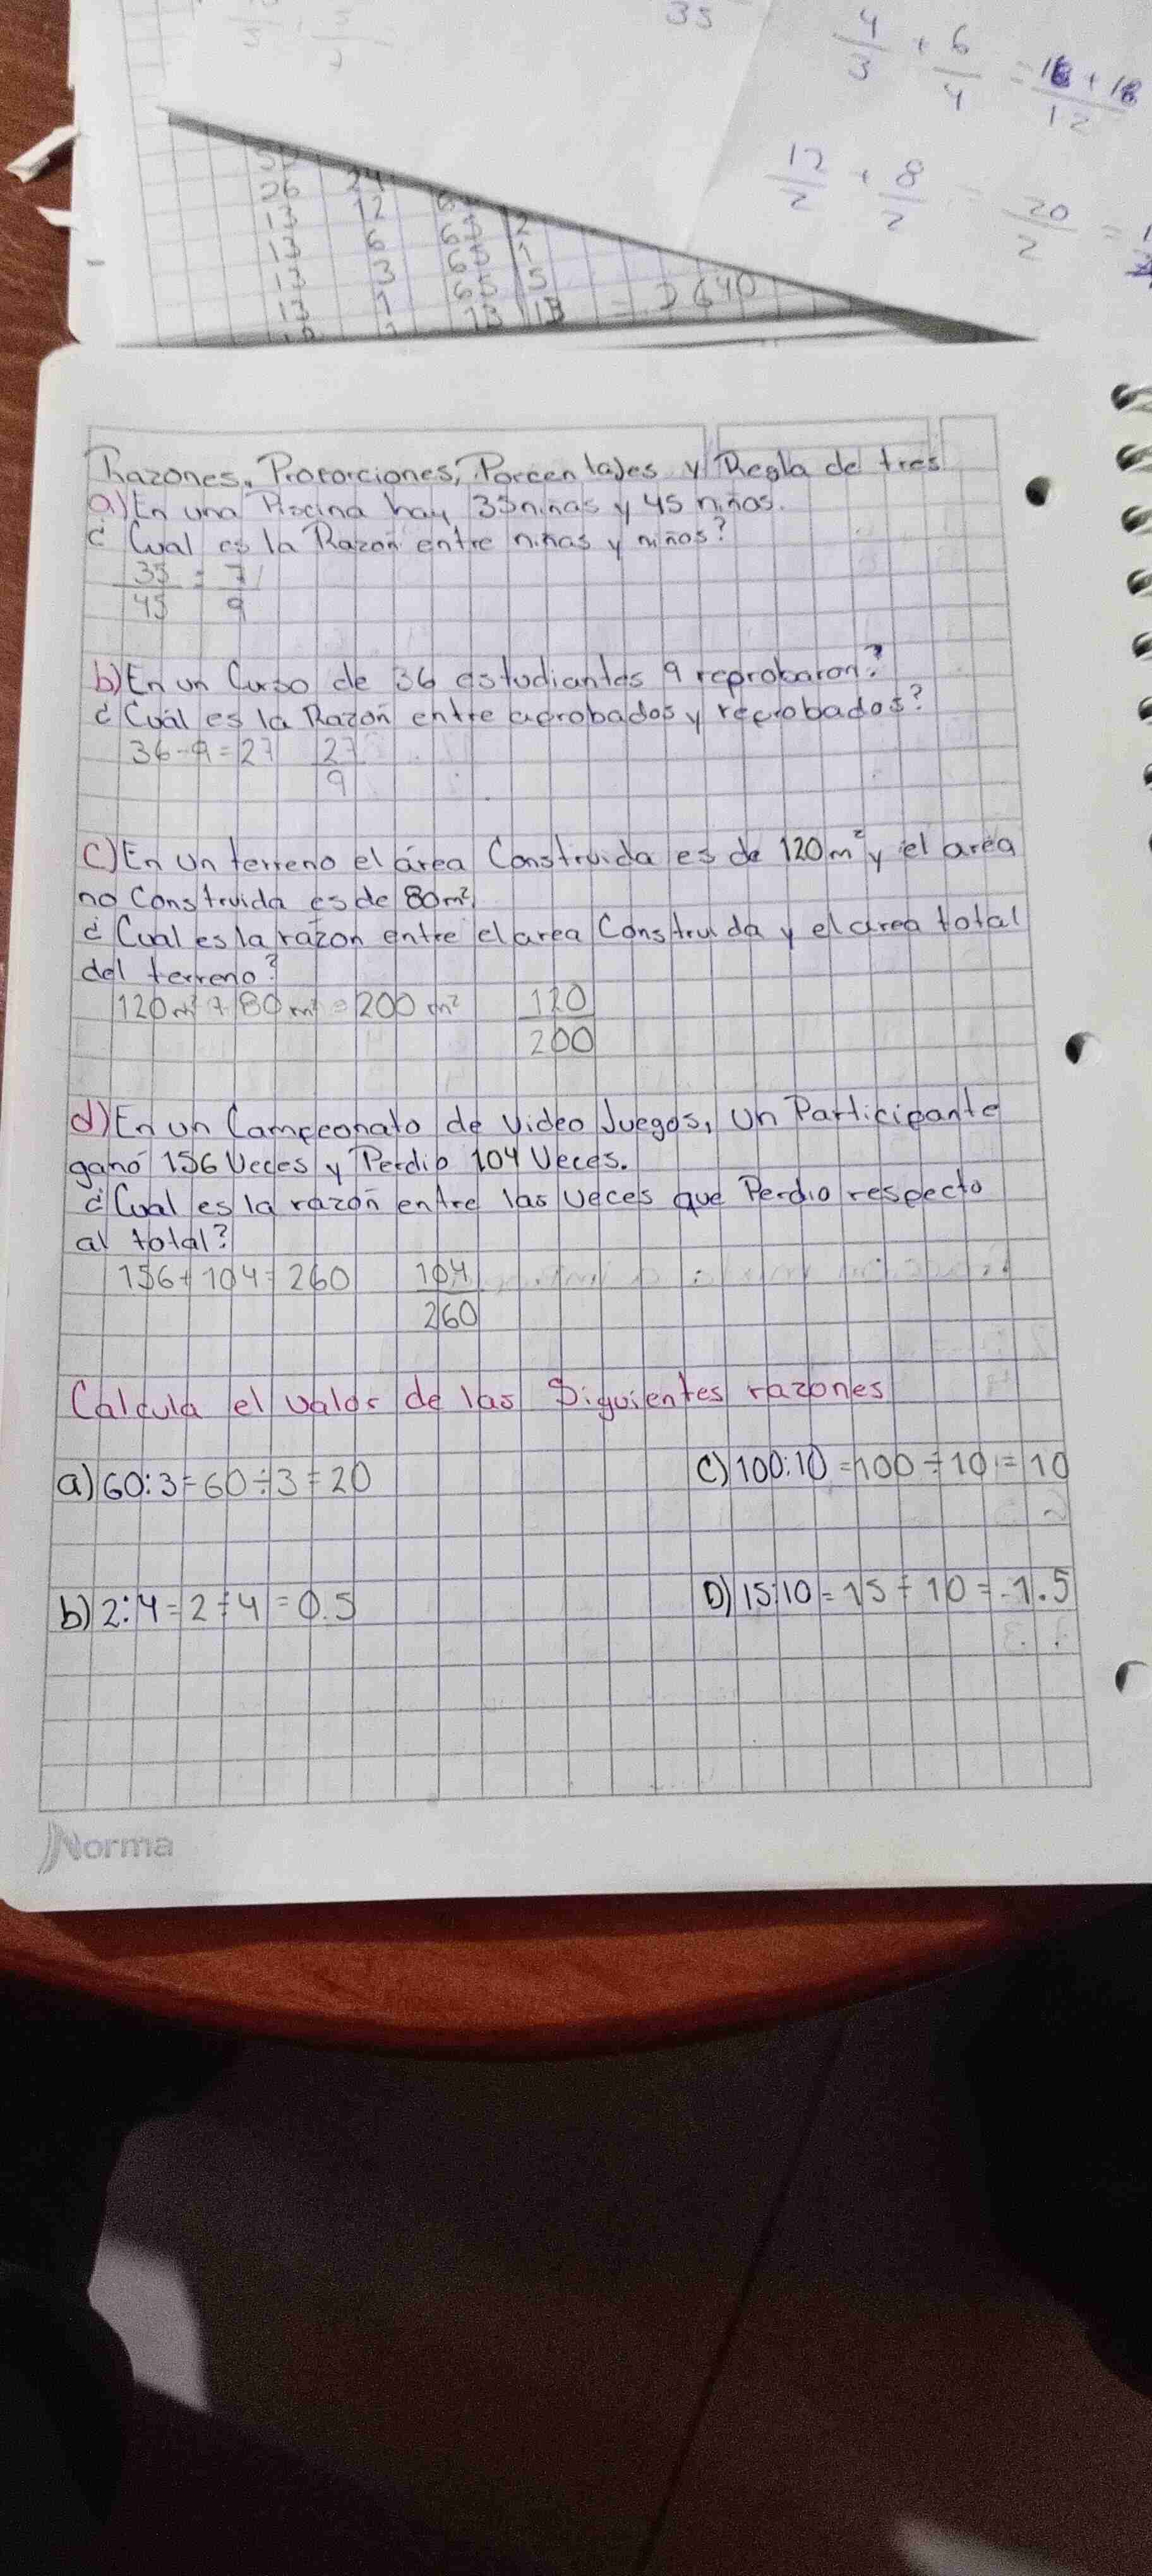 35
4/3 + 6/4 = 16 + 18/12
12/2 + 8/2 = 20/2 =
26 24
13 12
13 6 65
13 3 65 5
13 1 13 13 = 2640
Razones, Proporciones, Porcentajes y Regla de tres
a) En una Piscina hay 35 niñas y 45 niños.
¿Cual es la Razon entre niñas y niños?
35/45 = 7/9
b) En un Curso de 36 estudiantes 9 reprobaron?
¿Cuál es la Razón entre aprobados y reprobados?
36-9=27 27/9
c) En un terreno el área Construida es de 120m² y el area
no Construida es de 80m².
¿Cual es la razon entre el area Construida y el area total
del terreno?
120m² + 80m² = 200m² 120/200
d) En un Campeonato de Video Juegos, Un Participante
ganó 156 Veces y Perdio 104 Veces.
¿Cual es la razon entre las Veces que Perdio respecto
al total?
156+104=260 104/260
Calcula el valor de las Siguientes razones
a) 60:3=60÷3=20
c) 100:10=100÷10=10
b) 2:4=2÷4=0.5
D) 15:10=15÷10=1.5
Norma